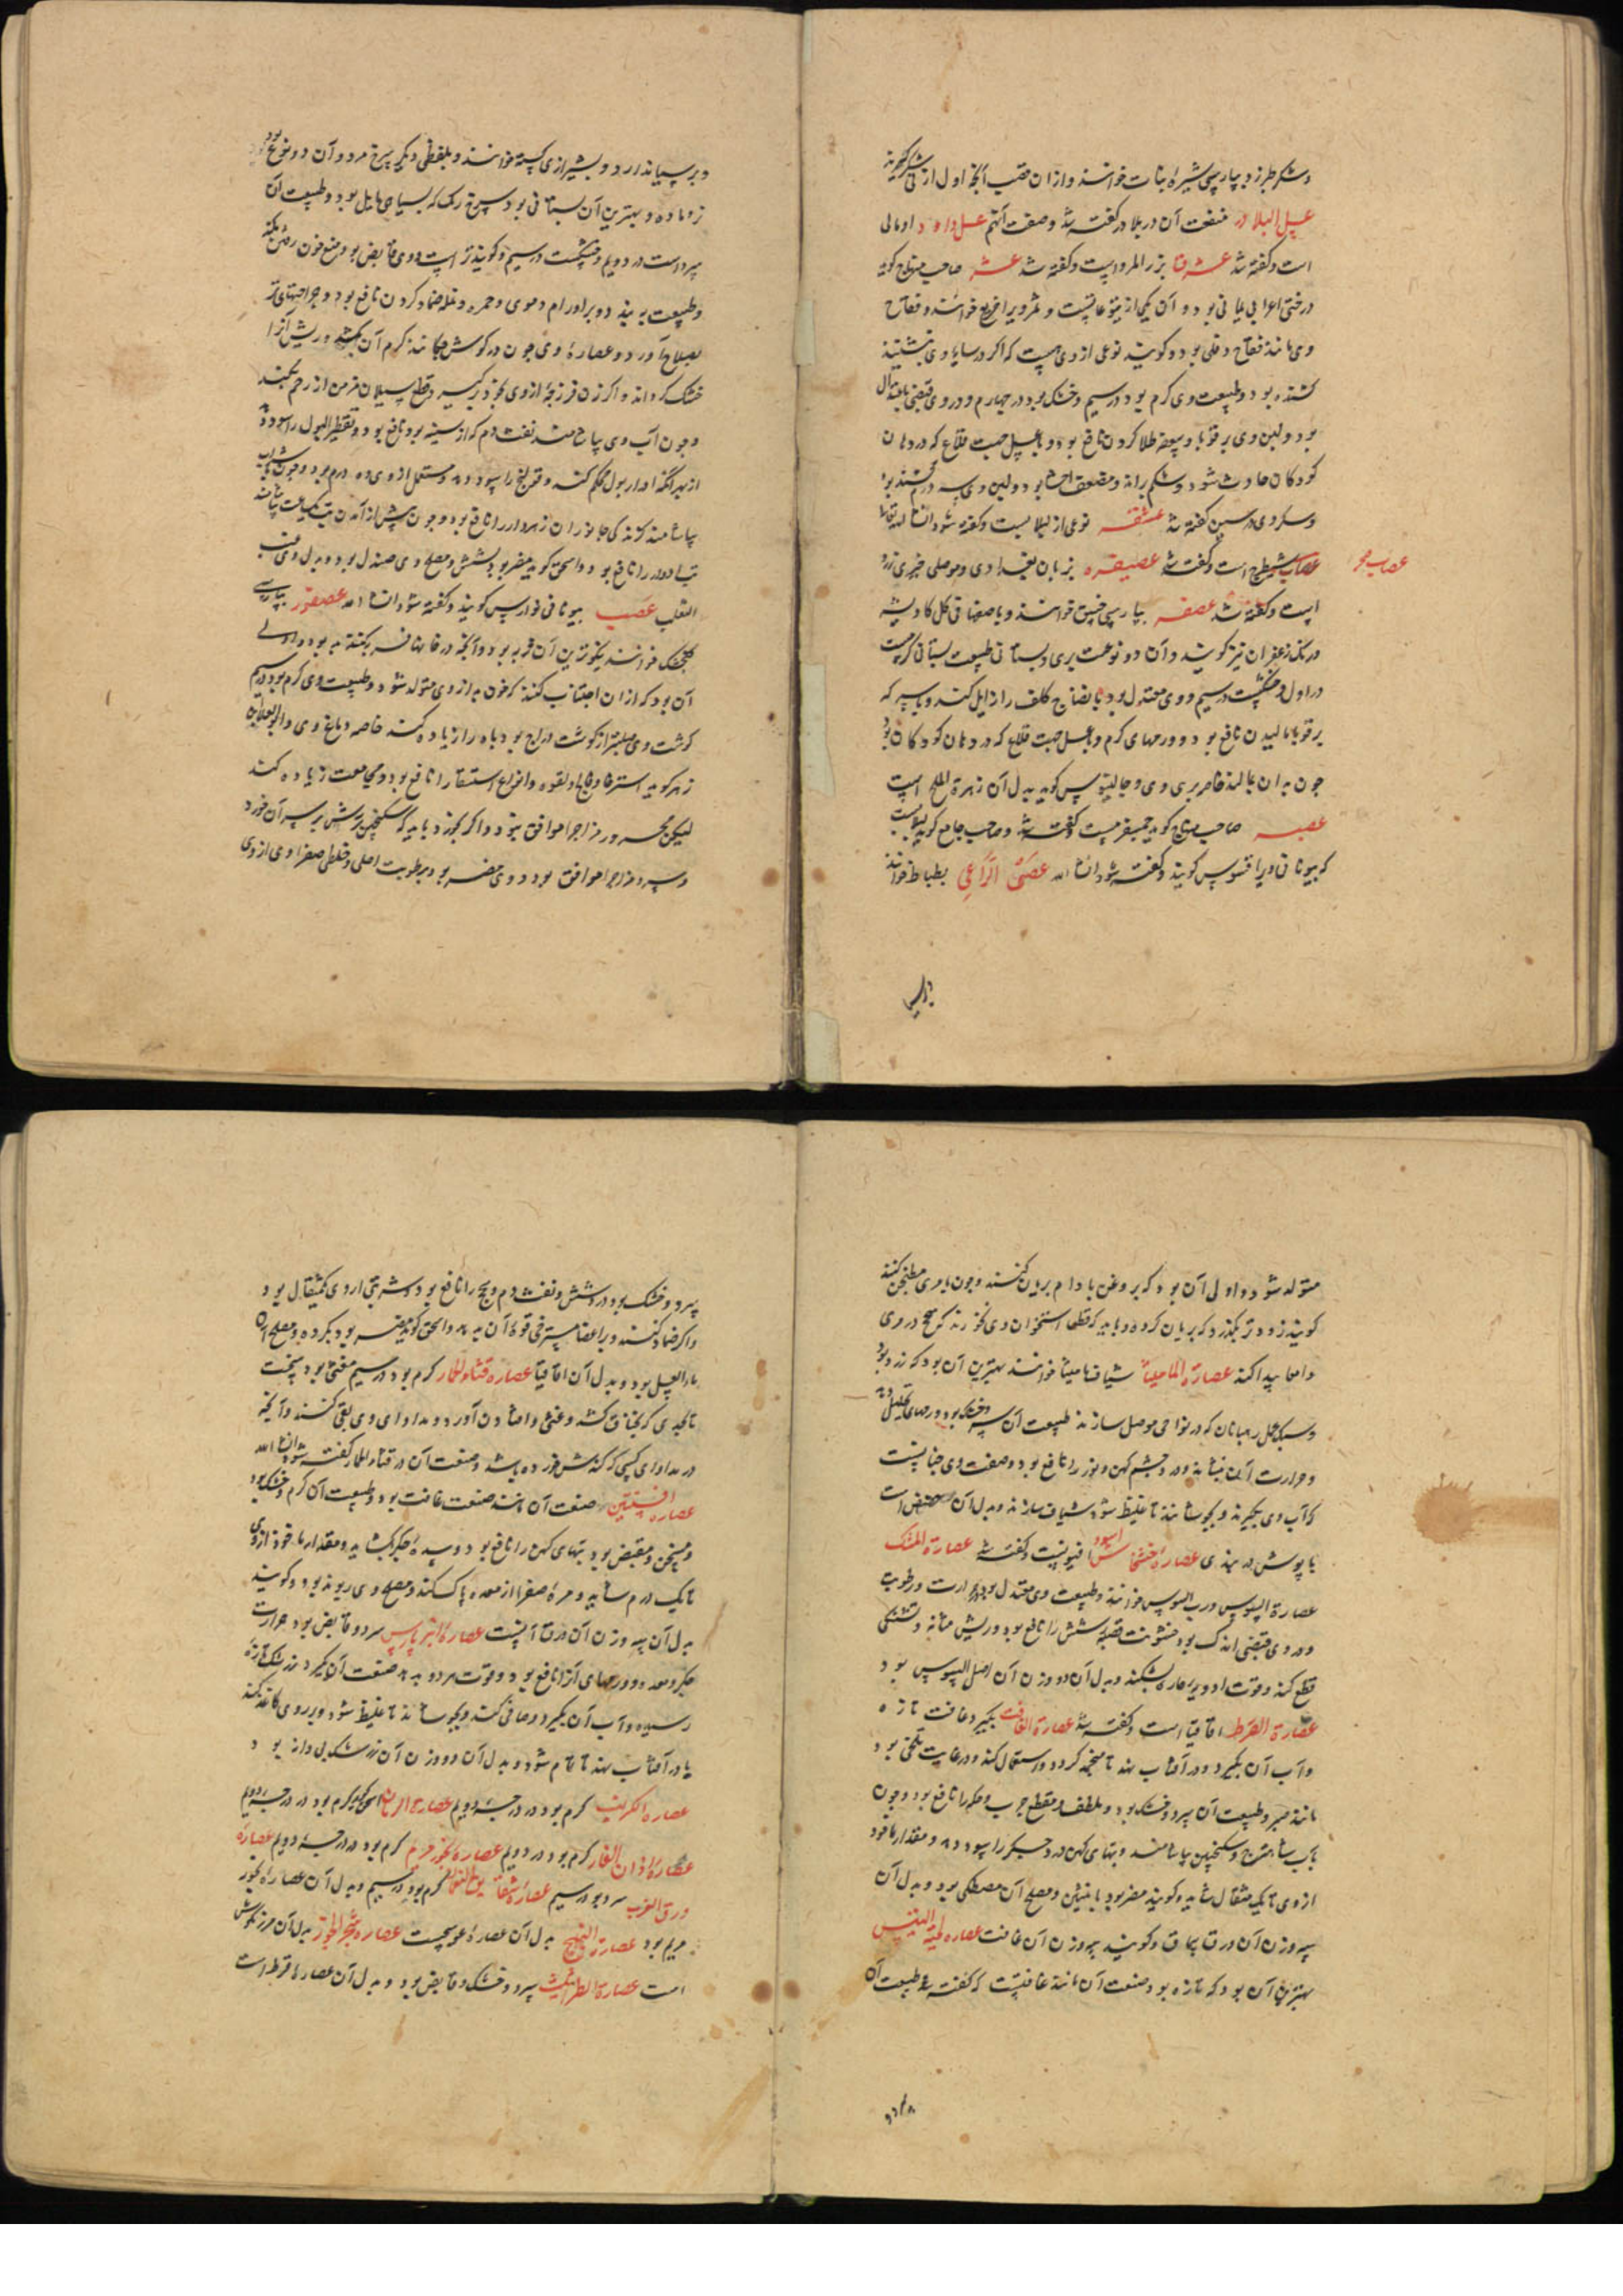 وشکر طبرزد بپارسی شیراه نبات خوانند و ازان قصب آنچه اول از نی شکر گیرند
عسل البلادر منفعت آن در بلادر گفته شد و صفت آنهم عسل داود اومالی
است و گفته شد عشرفا بزر المرو است و گفته شد عشر صاحب منهاج گوید
درختی اعرابی یمانی بود و آن یکی از یتوعاتست و ثمر ویرا خرفع خوانند و فقاح
وی مانند فقاح دفلی بود و گویند نوعی از وی هست که اگر در سایه وی بنشینند
کشنده بود و طبیعت وی گرم بود در سیم و خشک بود در چهارم و در وی قبضی باعتدال
بود و لبن وی بر قوبا و سعفه طلا کردن نافع بود و با عسل جهت قلاع که در دهان
کودکان حادث شود و شکم براند و مضعف احشا بود و لبن وی سه درم کشنده بود
وسکر وی در سین گفته شد عشقه نوعی از لبلابست و گفته شود انشا الله تعالی
عصاب شیطرج است و گفته شد عصیفره بزبان بغدادی و موصلی خیری زرد
است و گفته شد عصفر بپارسی خسق خوانند و باصفهانی گل کاویشه
و رنگ زعفران نیز گویند و آن دو نوعست بری و بستانی طبیعت بستانی گرمست
در اول و خشکست در سیم و وی معتدل بود با نضاج کلف را زایل کند و با سرکه
بر قوبا مالیدن نافع بود و ورمهای گرم و با عسل جهت قلاع که در دهان کودکان بود
چون بدان بمالند خاصه بری وی و جالینوس گوید بدل آن زهرة الملح است
عصبه صاحب منهاج گوید جمسفرمست و گفته شد و صاحب جامع گوید لبلابست
که بیونانی ویرا قسوس گویند و گفته شود انشا الله عصی الراعی بطباط خوانند
عصاب مجر
و برسیاندارد و بشیرازی کسته خوانند و بلفظی دیگر سرخ مرد و آن دو نوع بود
نر و ماده و بهترین آن بستانی بود سرخ رنگ که بسیاهی مایل بود و طبیعت آن
سردست در دویم و خشکست در سیم و گویند تر است و وی قابض بود منع خون رفتن بکند
و طبیعت ببندد و بر اورام دموی و حمره و نمله ضماد کردن نافع بود و جراحتهای تر
بصلاح آورد و عصاره وی چون در گوش چکانند کرم آن بکشد و ریش آنرا
خشک گرداند و اگر زن فرزجه از وی بخود برگیرد قطع سیلان مزمن از رحم بکند
و چون آب وی بیاشامند نفث دم که از سینه بود نافع بود و تقطیر البول را سود دهد
از بهر آنکه ادرار بول محکم کند و قولنج را سود دهد و مستعمل از وی ده درم بود و چون با شراب
بیاشامند گزندگی جانوران زهردار را نافع بود و چون پیش از آمدن تب بیکساعت بیاشامند
تب ادوار را نافع بود و اسحق گوید مضر بود بشش و مصلح وی صندل بود و بدل وی عنب
الثعلب عصیب بیونانی فوارس گویند و گفته شود انشا الله عصفور بپارسی
گنجشک خوانند نیکوترین آن فربه بود و آنچه در خانها فربه گشته به بود و اولی
آن بود که ازان اجتناب کنند که خون بد از وی متولد شود و طبیعت وی گرم بود در سیم
گوشت وی صلبتر از گوشت دراج بود و باه را زیاده کند خاصه دماغ وی و ابو العلا ابن
زهر گوید استرخا و فالج و لقوه و انواع استسقا را نافع بود و مجامعت زیاده کند
لیکن محرور مزاجرا موافق نبود و اگر بخورد باید که سکنجبین ترش بر سر آن خورد
و سرد مزاجرا موافق بود و وی مضر بود برطوبت اصلی و خلطی صفراوی از وی
متولد شود و اولی آن بود که بروغن بادام بریان کنند و چون با مری مطنجن کنند
گویند زودتر بگذرد که بریان کرده و باید که قطعا استخوان وی نخورند که سحج در مری
و امعا پیدا کند عصارة المامیثا شیاف مامیثا خوانند بهترین آن بود که زرد بود
و سبک عمل رهبانان که در نواحی موصل سازند طبیعت آن سرد و خشک بود و ورمهای تحلیل دهد
و حرارت آن بنشاند و درد چشم کهن و نو را نافع بود و صفت وی چنانست
که آب وی بگیرند و بجوشانند تا غلیظ شود شیاف سازند و بدل آن حضض است
یا پوش دربندی عصاره خشخاش اسود افیونست و گفته شد عصارة المسک
عصارة السوس و رب السوس خوانند و طبیعت وی معتدل بود در حرارت و رطوبت
و در وی قبضی اندک بود خشونت قصبه شش را نافع بود و ریش مثانه و تشنگی
قطع کند و قوت ادویه حاره بشکند و بدل آن دو وزن آن اصل السوس بود
عصارة القرظ اقاقیا است و گفته شد عصارة الغافت بگیرد غافت تازه
و آب آن بگیرد و در آفتاب نهد تا منجمد گردد و استعمال کند و در غایت تلخی بود
مانند صبر و طبیعت آن سرد و خشک بود و ملطف و مقطع جرب و حکه را نافع بود و چون
بآب شاهترج و سکنجبین بیاشامند و تبهای کهن و درد جگر را سود دهد و مقدار ماخوذ
از وی تا یک مثقال شاید و گویند مضر بود بانثیین و مصلح آن مصطکی بود و بدل آن
سه وزن آن ورق سحاق و گویند سه وزن آن غافت عصاره لحیة التیس
بهترین آن بود که تازه بود و صنعت آن مانند غافتست که گفته شد طبیعت آن
سرد و خشک بود در شش و نفث دم و سحج را نافع بود و شربتی از وی یکمثقال بود
و اگر ضماد کنند بر اعضا مسترخی قوة آن بدهد و اسحق گوید مضر بود بگرده و مصلح آن
ماء العسل بود و بدل آن اقاقیا عصاره قثاء الحمار گرم بود در سیم مغثی بود سخت
تا بحدی که بخناق کشد و غشی و افتادن آورد و مداوای وی بقی کنند و آنچه
در مداوای کسی که کندش خورده باشد و منفعت آن در قثاء الحمار گفته شود انشا الله
عصاره افسنتین صنعت آن مانند صنعت غافت بود و طبیعت آن گرم و خشک بود
و مسخن و مقبض بود تبهای کهن را نافع بود و سده جگر بگشاید و مقدار ماخوذ از وی
تا یک درم شاید و مره صفرا از معده پاک کند و مصلح وی ریوند بود و گویند
بدل آن سه وزن آن ورق آنست عصاره انبرباریس سرد و قابض بود حرارت
جگر و معده و ورمهای آنرا نافع بود و قوت هر دو بدهد صنعت آن بگیرد زرشک تازه
رسیده و آب آن بگیرد و صافی کند و بجوشاند تا غلیظ شود و بر روی کاغذ کند
یا در آفتاب نهد تا تمام شود و بدل آن دو وزن آن زرشک بی دانه بود
عصاره الکرنب گرم بود در درجه دویم عصارة الریحان اسحق گوید گرم بود در درجه دویم
عصارة اذان الفار گرم بود در دویم عصارة بخور مریم گرم بود در درجه دویم عصارة
ورق الغرب سرد بود در سیم عصاره شقایق النعمان گرم بود در سیم و بدل آن عصاره بخور
مریم بود عصارة البنج بدل آن عصاره عوسجست عصاره شجر الجوز بدل آن مرزنکوش
است عصارة الطراثیث سرد و خشک و قابض بود و بدل آن عصاره قرظ است